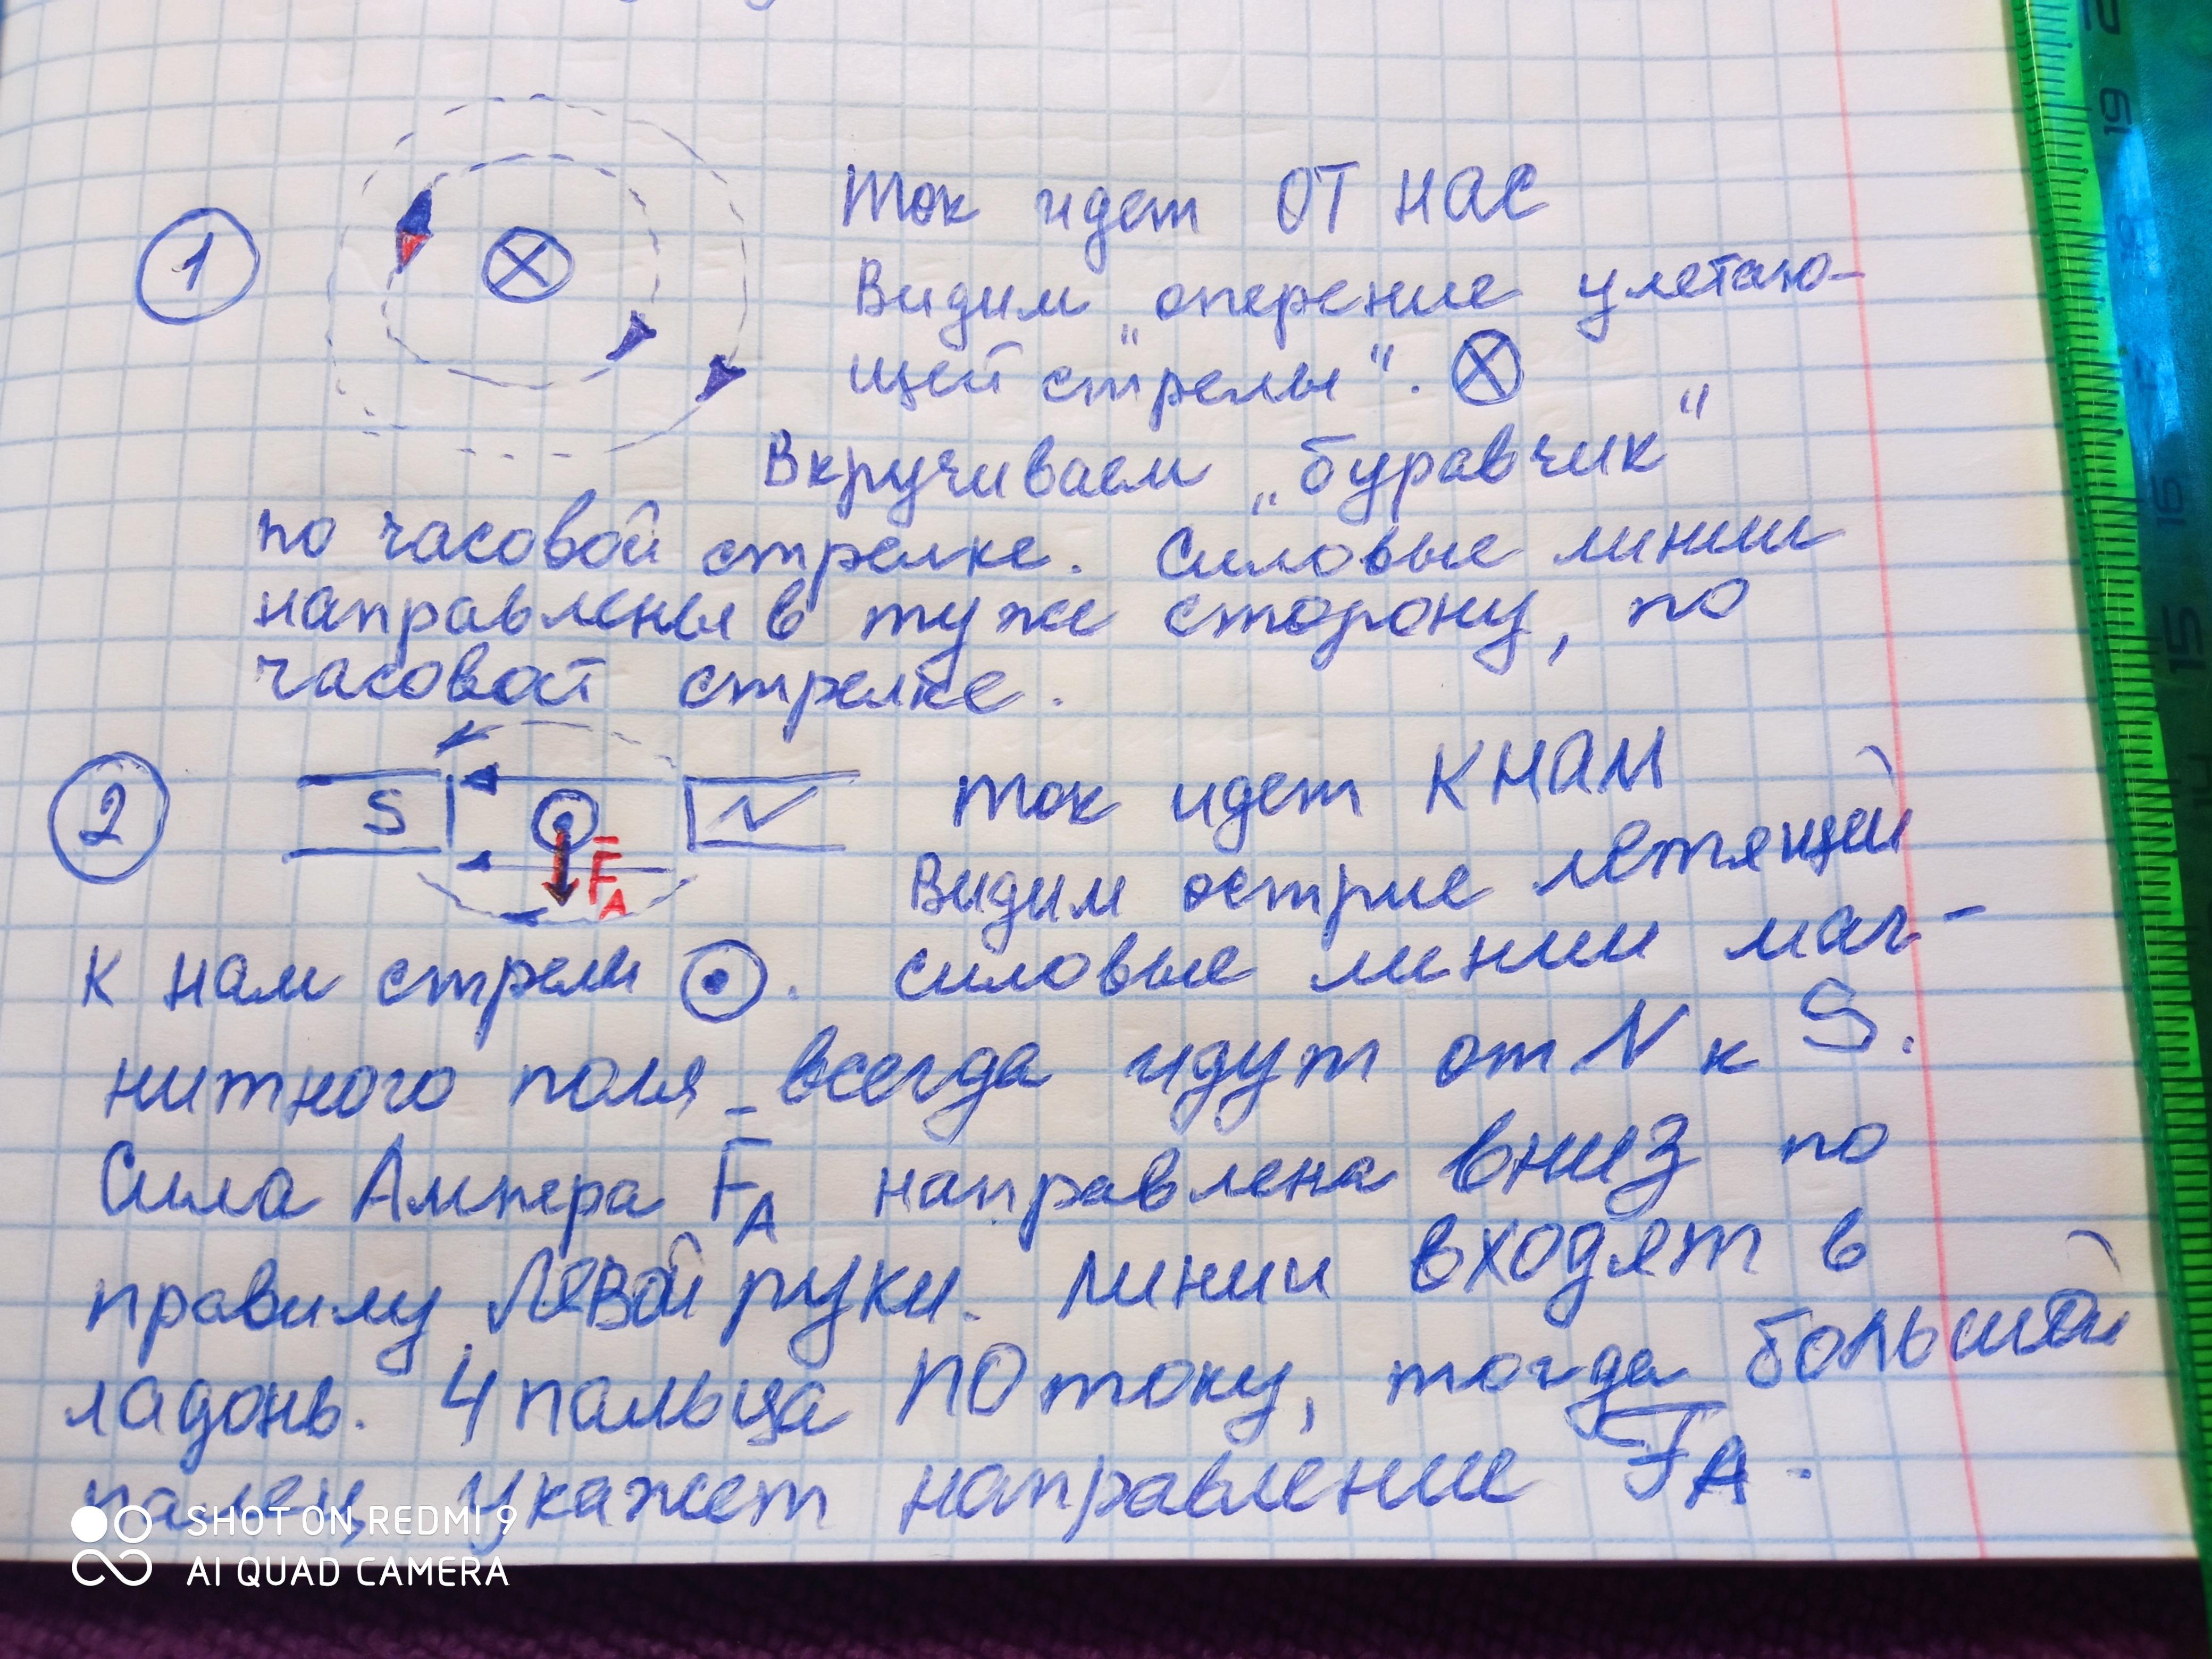 1
Ток идет ОТ НАС
Видим „оперение улетаю-
щей стрелы“. ⊗
Вкручиваем „буравчик“
по часовой стрелке. Силовые линии
направлены в туже сторону, по
часовой стрелке.
2
S
N
F̅A
Ток идет К НАМ
Видим острие летящей
к нам стрелы ⊙. Силовые линии маг-
нитного поля всегда идут от N к S.
Сила Ампера F̅A направлена вниз по
правилу Левой руки. Линии входят в
ладонь. 4 пальца ПО току, тогда большой
палец укажет направление F̅A.
SHOT ON REDMI 9
AI QUAD CAMERA
19
18
17
16
15